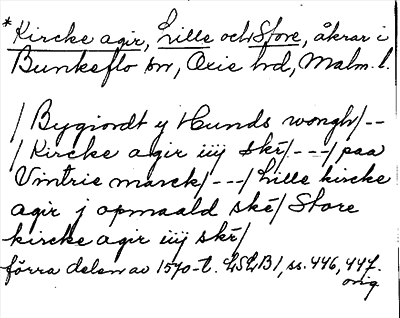 *Kircke agir, Lille och Store, åkrar i
Bunkeflo sn, Oxie hd, Malm. l.
/ Bygiordt y Hunds wongh/--
/ Kircke agir iiij skĕ/---/ paa
Vintrie marck/---/ Lille kircke
agir j opmaald skĕ/ Store
kircke agir iiij skĕ/
förra delen av 1570-t. LSLB1, ss. 446, 447.
orig